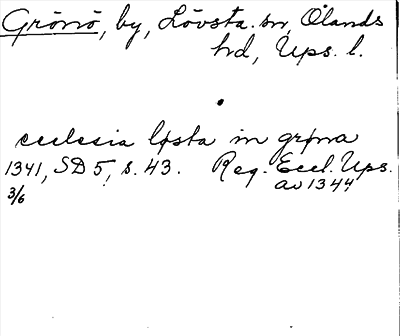 Grönö, by, Lövsta sn, Ölands
hd, Ups. l.
ecclesia løsta in grøna
1341, SD 5, s. 43. Reg. Eccl. Ups.
av 1344
3/6